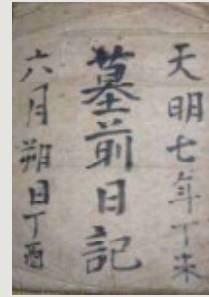 天明七年丁未
墓前日記
六月朔日丁酉